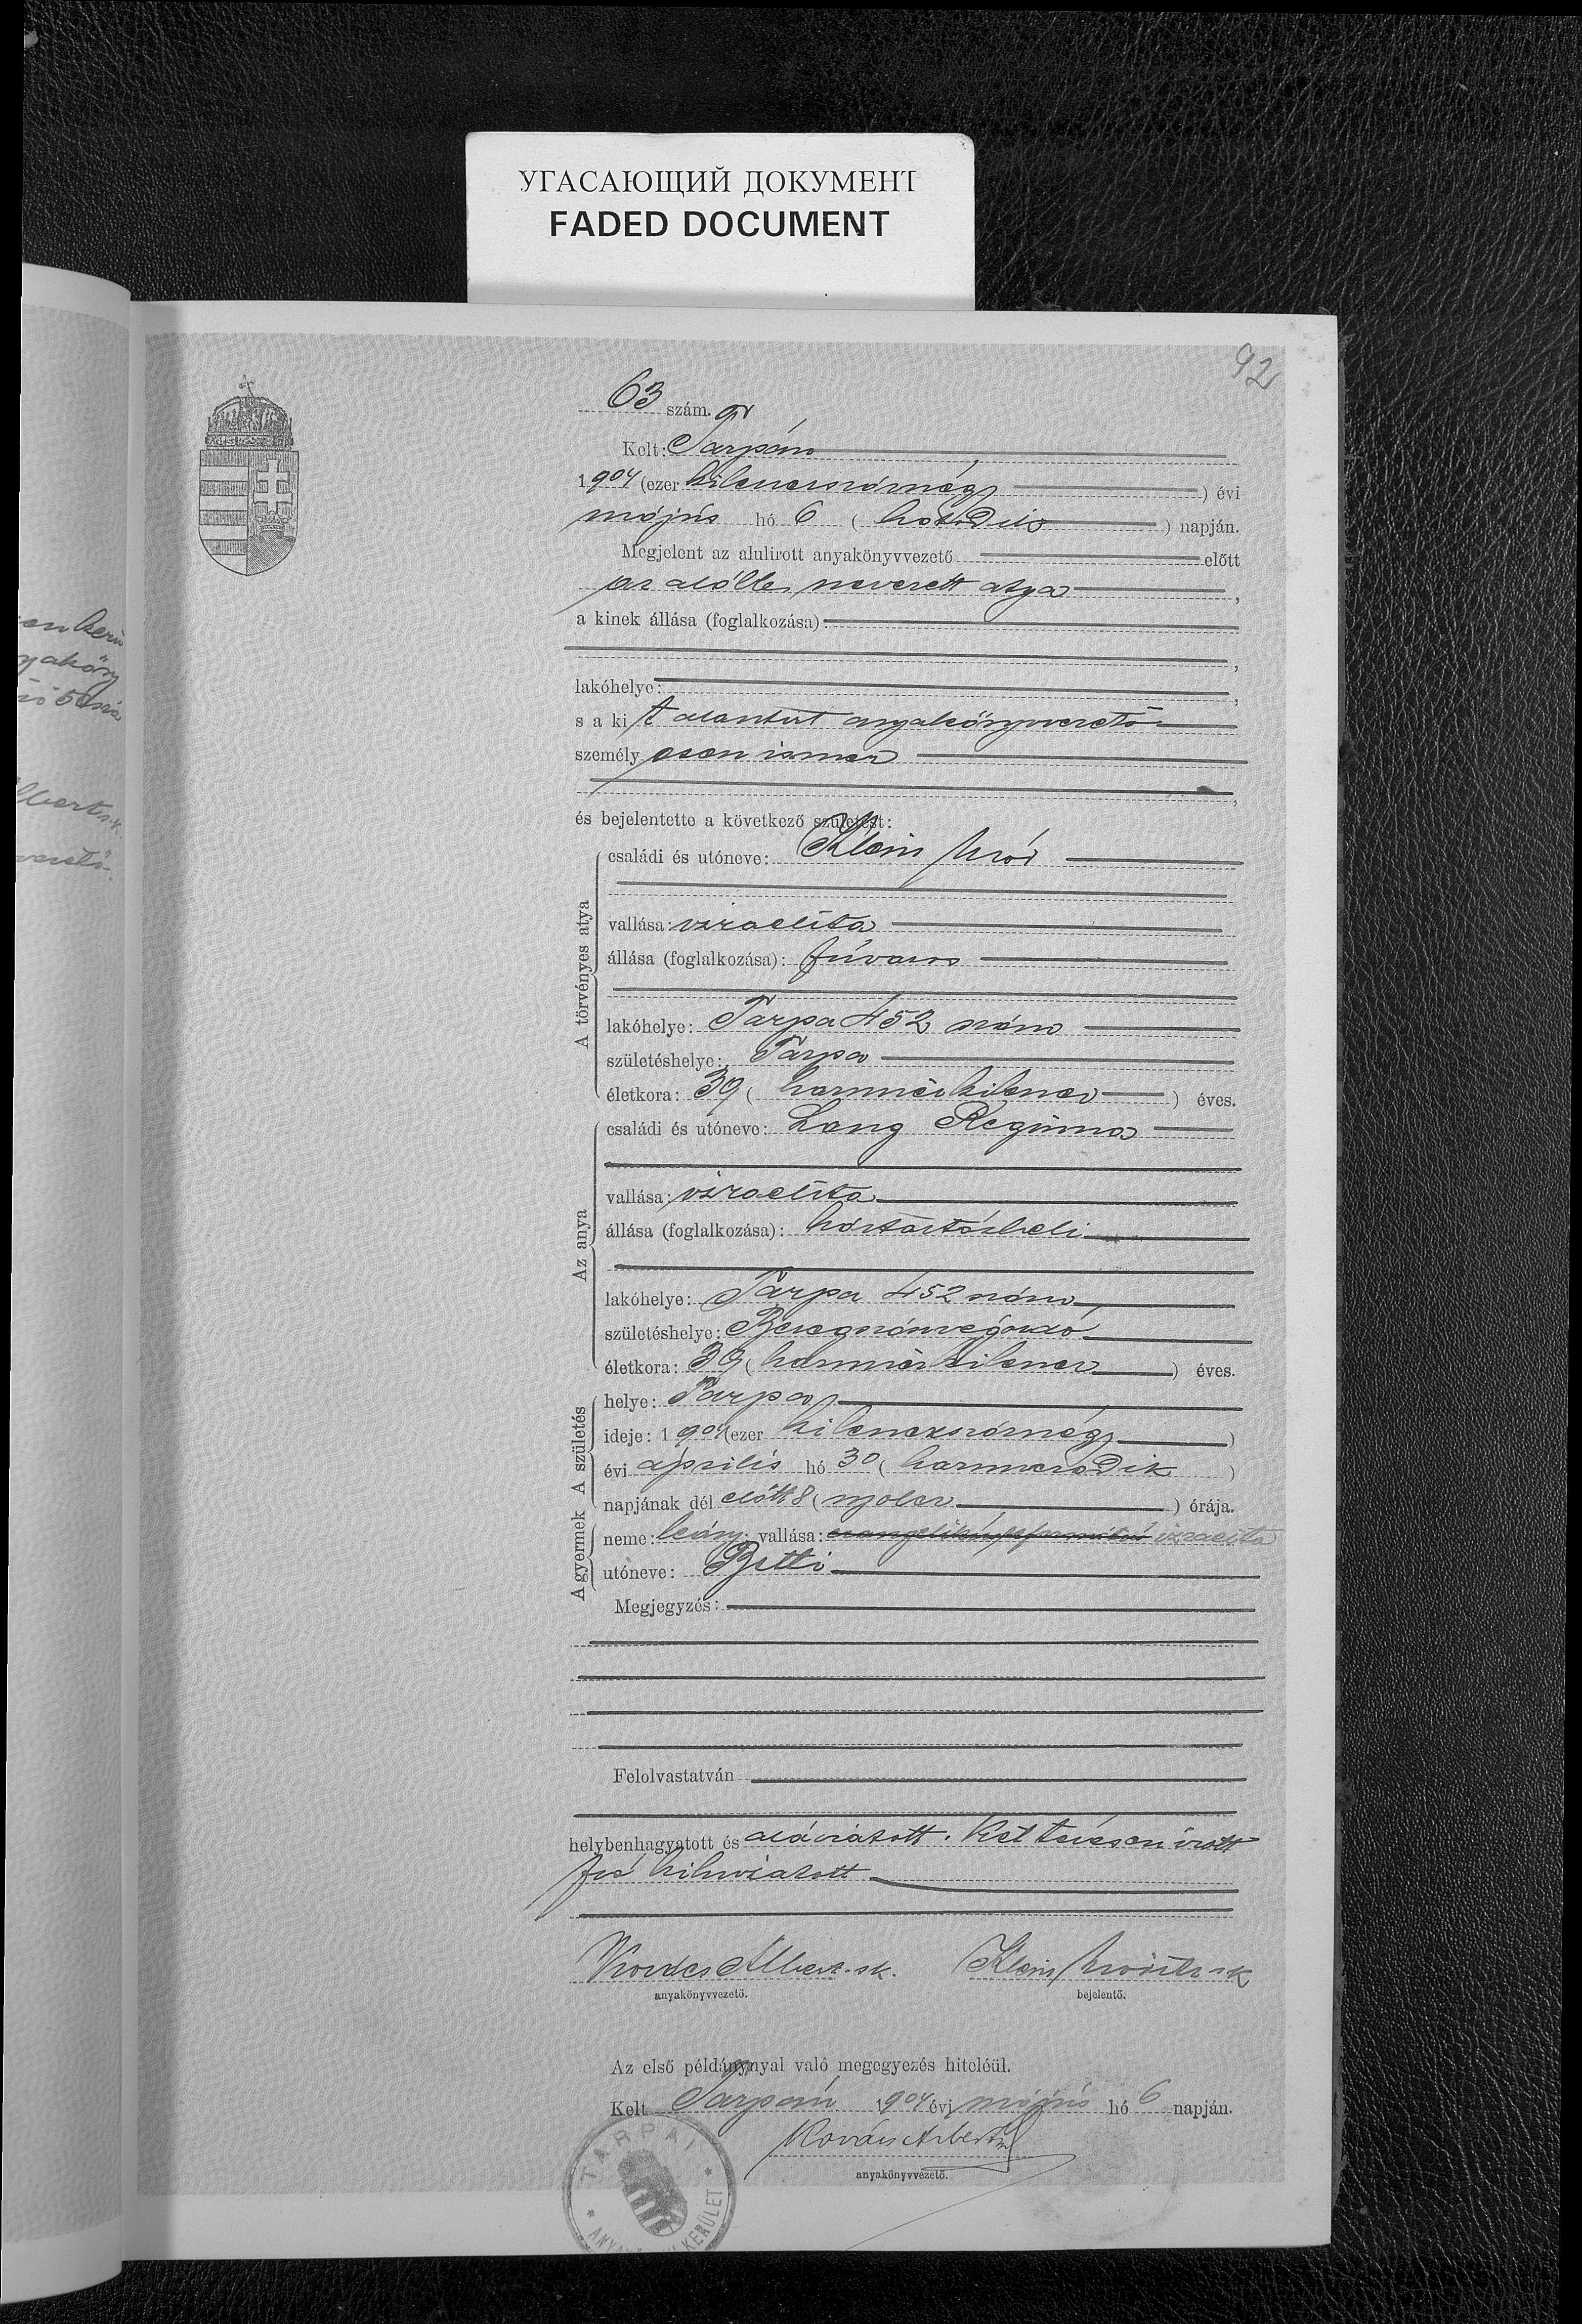 УГАСАЮЩИЙ ДОКУМЕНТ
FADED DOCUMENT
92
63 szám.
Kelt: Tarpán
1904 (ezer kilenczszáznégy) évi
május hó 6 (hatodik) napján.
Megjelent az alulirott anyakönyvvezető előtt
az alább nevezett atya,
a kinek állása (foglalkozása):
lakóhelye:
s a kit alantirt anyakönyvvezető
személyesen ismer
és bejelentette a következő születést:
A törvényes atya
családi és utóneve: Klein Mór
vallása: izraelita
állása (foglalkozása): fúvaros
lakóhelye: Tarpa 452 szám
születéshelye: Tarpa
életkora: 39 (harminczkilencz) éves.
Az anya
családi és utóneve: Lang Reginna
vallása: izraelita
állása (foglalkozása): háztartásbeli
lakóhelye: Tarpa 452 szám
születéshelye:
életkora: 39 (harminczkilencz) éves.
A születés
helye: Tarpa
ideje: 1904 (ezer kilenczszáznégy)
évi április hó 30 (harminczadik)
napjának dél előtt 8 (nyolcz) órája.
A gyermek
neme: leány; vallása: evangélikus református izraelita
utóneve: Betti
Megjegyzés:
Felolvastatván
helybenhagyatott és aláiratott. Két tévesen irott
szó kihuzatott
Kovács Albert s.k. Klein Mór s.k.
anyakönyvvezető. bejelentő.
Az első példánynyal való megegyezés hiteléül.
Kelt Tarpán 1904 évi május hó 6 napján.
Kovács Albert
anyakönyvvezető.
TARPAI
KERÜLET